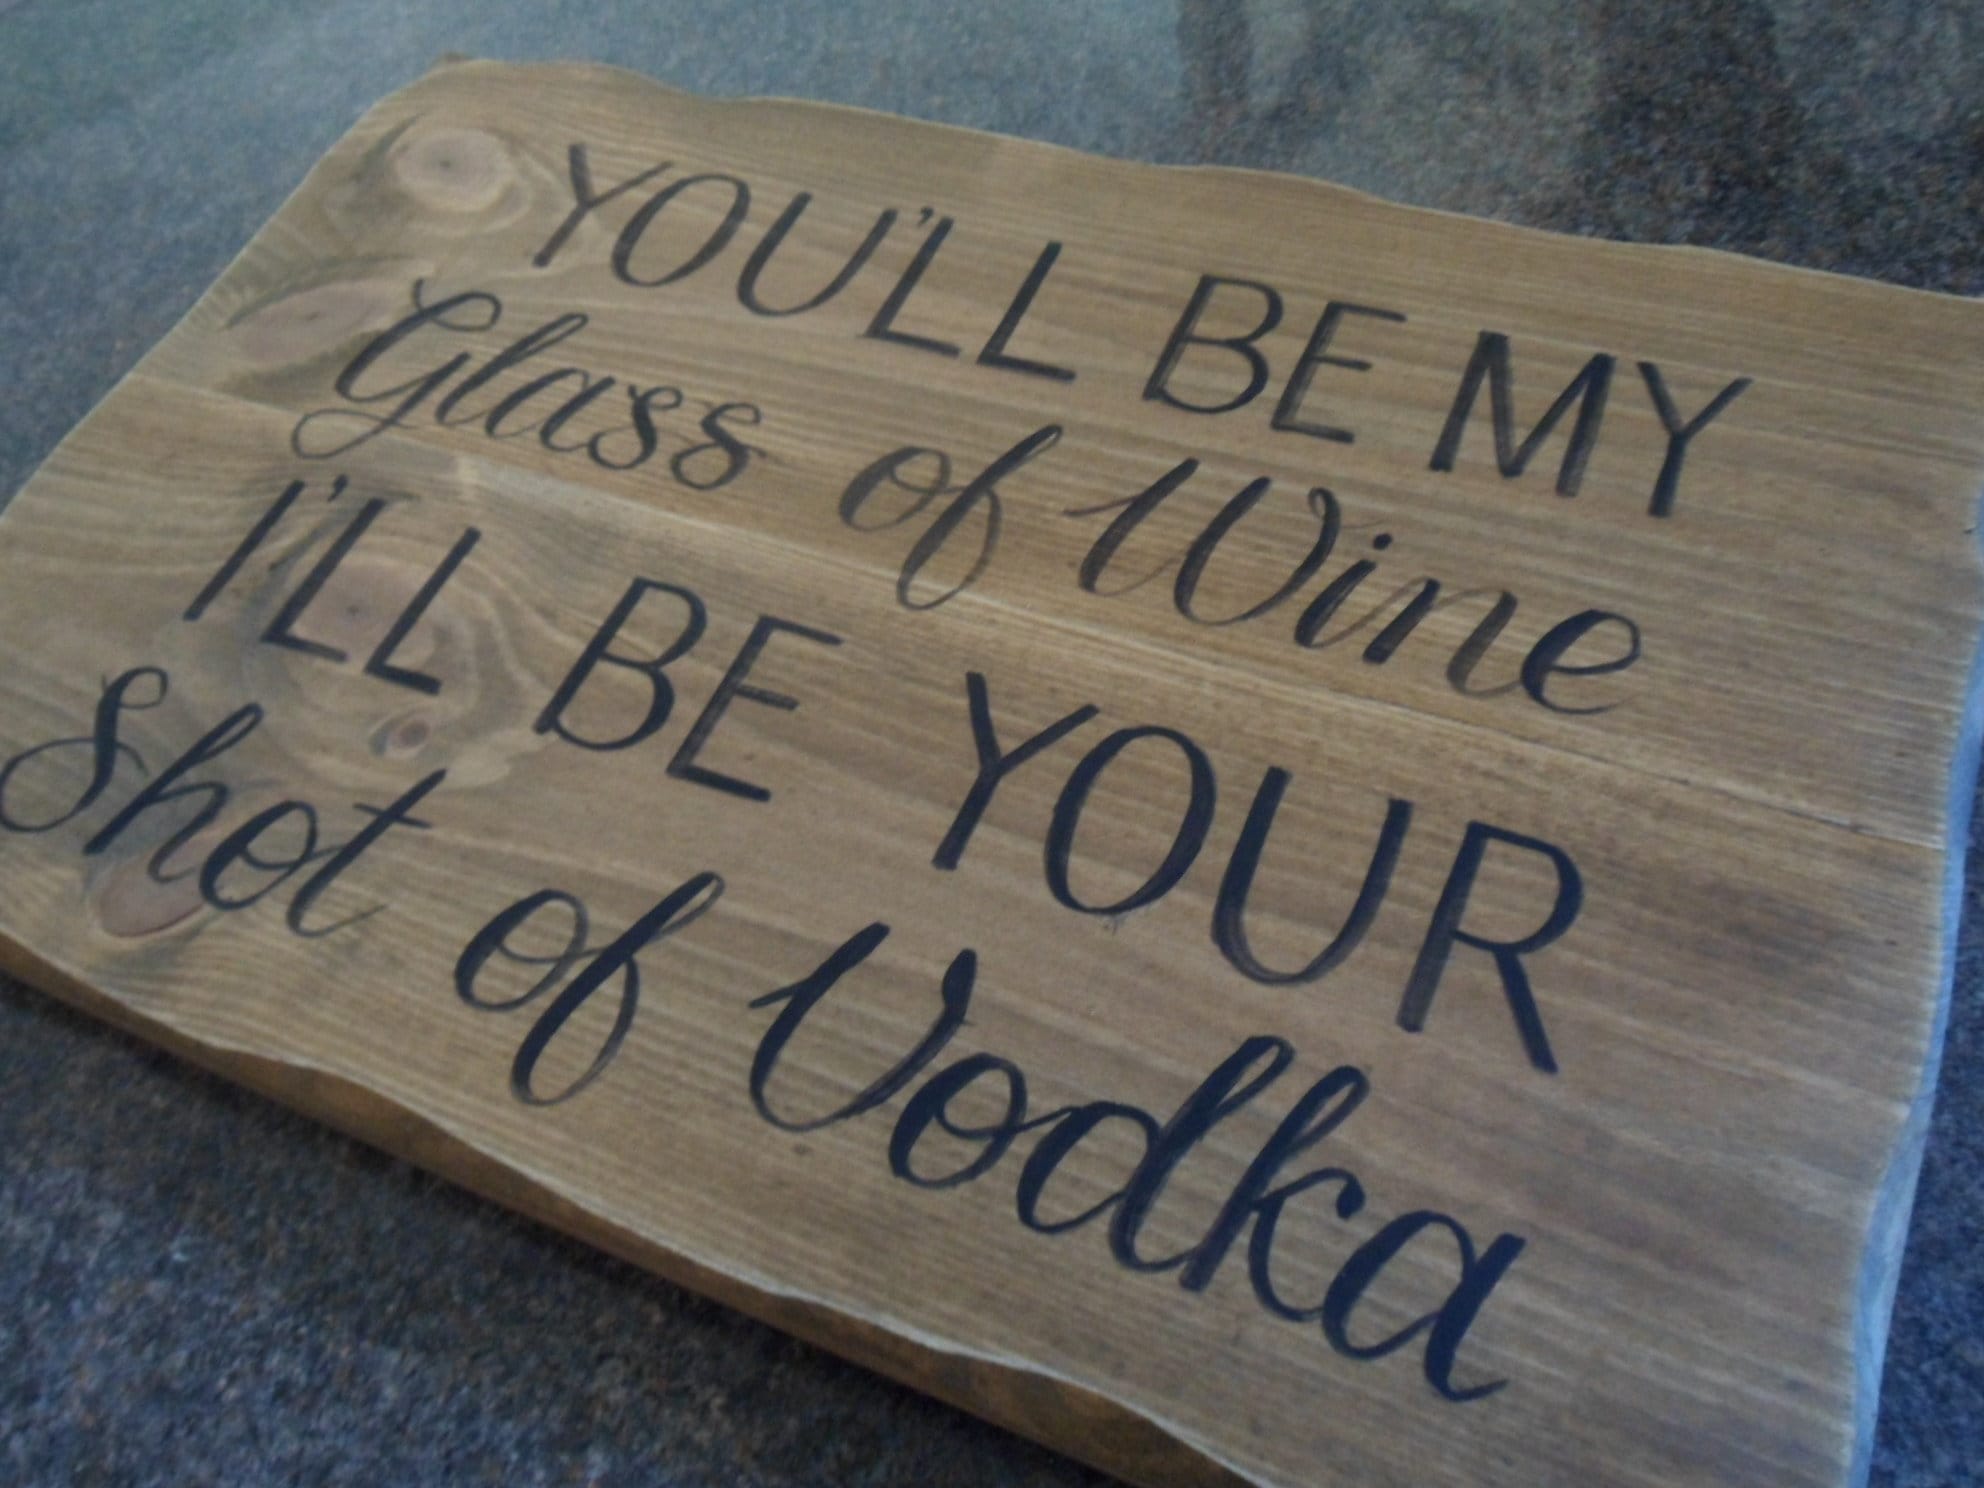 YOU'LL BE MY
Glass of Wine
I'LL BE YOUR
Shot of Vodka